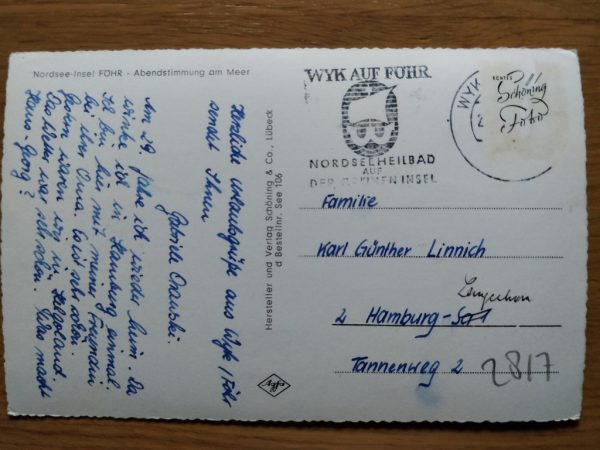 Nordsee-Insel FÖHR - Abendstimmung am Meer
Herzliche Urlaubsgrüße aus Wyk / Föhr
sendet Ihnen
Gabriele
Am 29. fahre ich wieder heim. Da
werde ich in Hamburg einmal
Ich bin hier mit meiner Freundin
bei ihrer Oma. Es ist sehr schön.
Gestern waren wir in Helgoland.
Das Wetter war sehr schön. Was macht
Hans Georg?
Hersteller und Verlag Schöning & Co., Lübeck
d Bestellnr. See 106
WYK AUF FÖHR
NORDSEEHEILBAD
AUF
DER GRÜNEN INSEL
WYK
ECHTES
Schöning
Foto
Familie
Karl Günther Linnich
2 Hamburg-
Tannenweg 2
2817